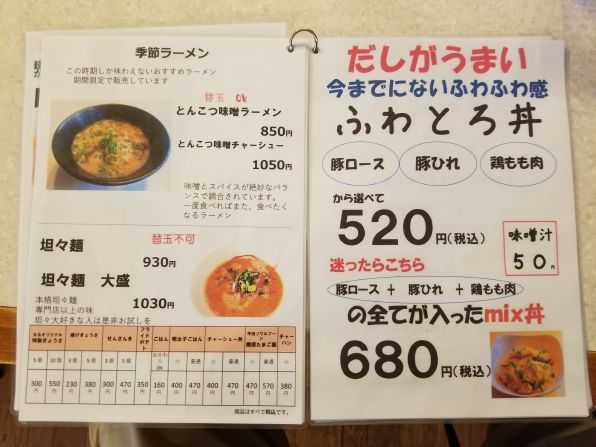 季節ラーメン
この時期しか味わえないおすすめラーメン
期間限定で販売しています
替玉 Ok
とんこつ味噌ラーメン
850円
とんこつ味噌チャーシュー
1050円
味噌とスパイスが絶妙なバラ
ンスで調合されています。
一度食べればまた、食べたく
なるラーメン
坦々麺
替玉不可
930円
坦々麺 大盛
1030円
本格坦々麺
専門店以上の味
坦々大好きな人は是非お試しを
揚げぎょうざ せんざんき フライドポテト ごはん 明太子ごはん チャーシュー丼 チャーハン
300円 550円 230円 380円 300円 470円 350円 160円 400円 470円 400円 470円 470円 570円 380円
商品はすべて税込です。
だしがうまい
今までにないふわふわ感
ふわとろ丼
豚ロース 豚ひれ 鶏もも肉
から選べて
520円(税込)
味噌汁
50円
迷ったらこちら
豚ロース + 豚ひれ + 鶏もも肉
の全てが入ったmix丼
680円(税込)